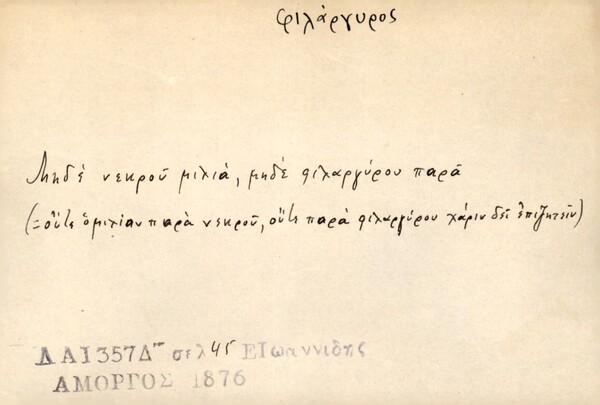 φιλάργυρος
Μηδέ νεκροῦ μιλιά, μηδέ φιλαργύρου παρᾶ
(=οὔτε ὁμιλίαν παρὰ νεκροῦ, οὔτε παρὰ φιλαργύρου χάριν δεῖ ἐπιζητεῖν)
ΔΑΙ357Δ σελ 45 ΕΙωαννίδης
ΑΜΟΡΓΟΣ 1876